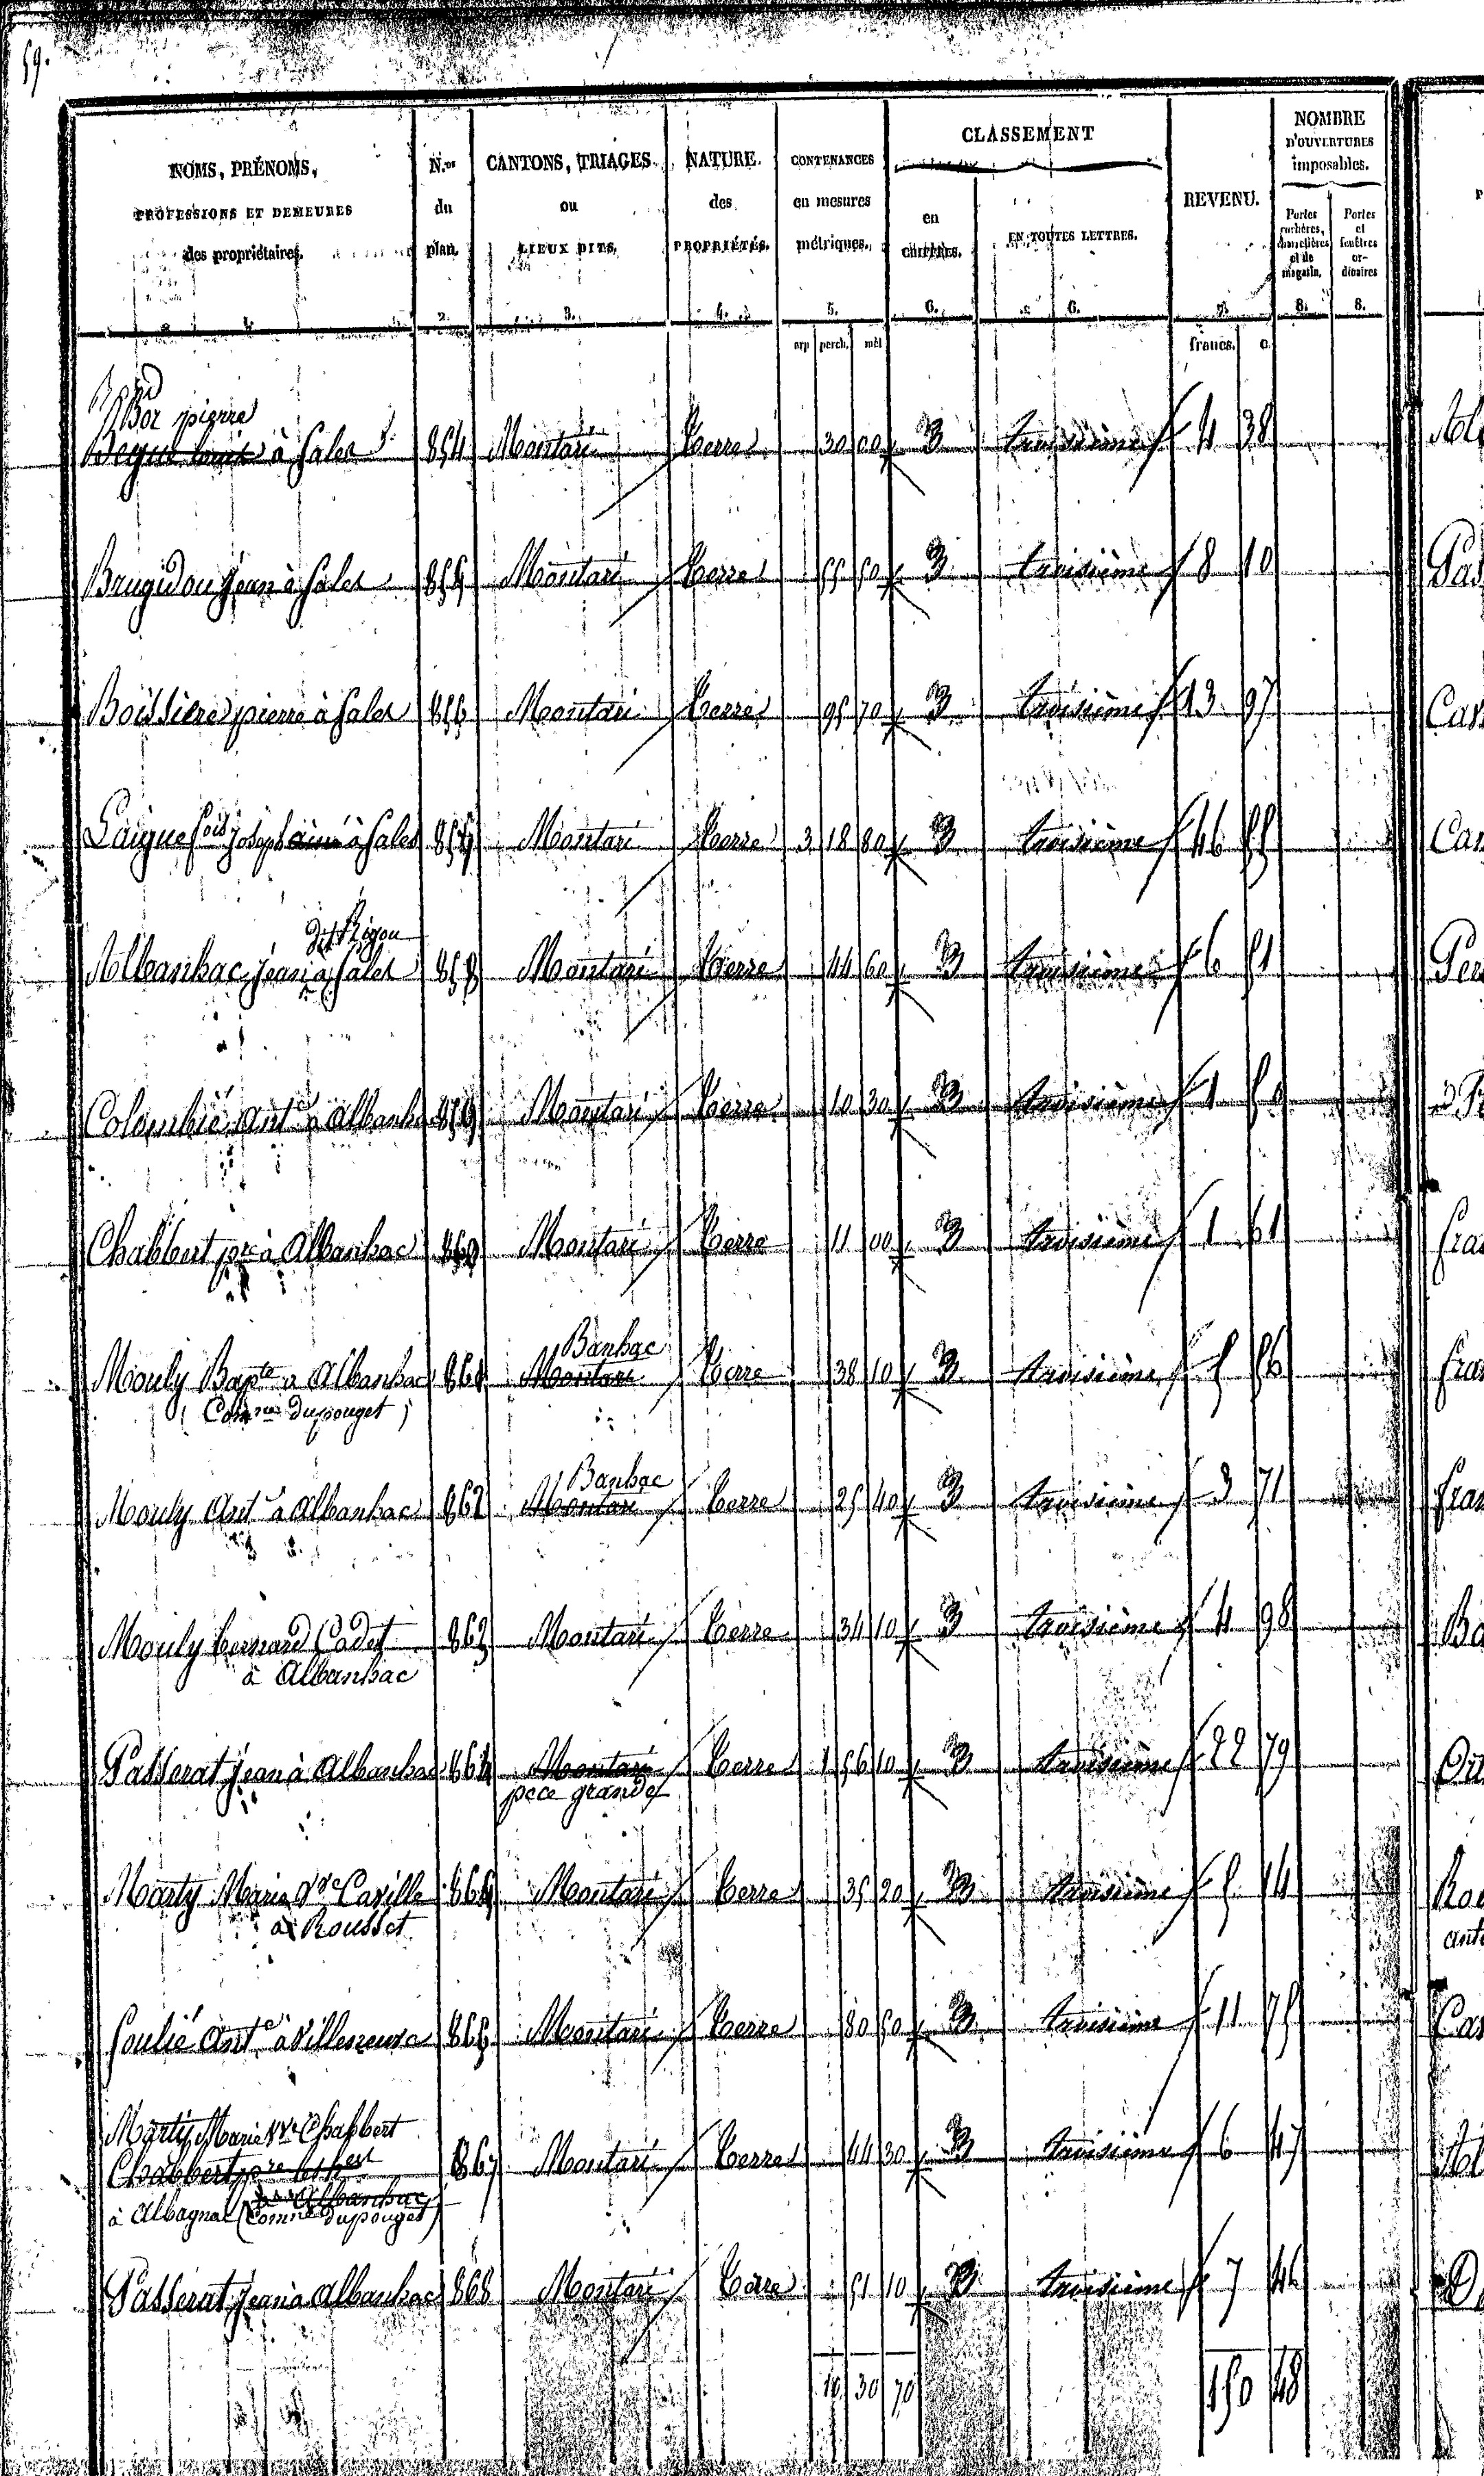 59.
NOMS, PRÉNOMS, PROFESSIONS ET DEMEURES des propriétaires. 1.
N.os du plan. 2.
CANTONS, TRIAGES ou LIEUX DITS. 3.
NATURE des PROPRIÉTÉS. 4.
CONTENANCES en mesures métriques. 5.
CLASSEMENT
en CHIFFRES. 6.
EN TOUTES LETTRES. 6.
REVENU. 7.
NOMBRE D'OUVERTURES imposables.
Portes cochères, charretières et de magasin. 8.
Portes et fenêtres ordinaires 8.
arp perch. mèt francs. c.
Bor pierre
à Sales 854 Montari Terre 30 00 3 troisième 4 38
Brugidou jean à Sales 855 Montari Terre 55 50 3 troisième 8 10
Boissiere pierre à Sales 856 Montari Terre 95 70 3 troisième 13 97
Laigue fois joseph ainé à Sales 857 Montari Terre 3 18 80 3 troisième 46 55
dit Rigou
Albanhac jean à Sales 858 Montari Terre 44 60 3 troisième 6 51
Colombié Ant.e à Albanhac 859 Montari Terre 10 30 3 troisième 1 50
Chabbert pre à Albanhac 860 Montari Terre 11 00 3 troisième 1 61
Banhac
Mouly Bapte à Albanhac 861 Montari Terre 38 10 3 troisième 5 56
(Comne du pouget)
Banhac
Mouly Ant.e à Albanhac 862 Montari Terre 25 40 3 troisième 3 71
Mouly bernard Cadet 863 Montari Terre 34 10 3 troisième 4 98
à Albanhac
Passerat jean à Albanhac 864 Montari Terre 1 56 10 3 troisième 22 79
pece grande
Marty Marie Vve Caville 865 Montari Terre 35 20 3 troisième 5 14
à Rousset
Soulié Ant.e à Villeneuve 866 Montari Terre 80 50 3 troisième 11 75
Marty Marie Vve Chabbert
Chabbert pre 867 Montari Terre 44 30 3 troisième 6 47
à Albanhac
à Albagnac (Comne du pouget)
Passerat jean à Albanhac 868 Montari Terre 51 10 3 troisième 7 46
10 30 70 150 48